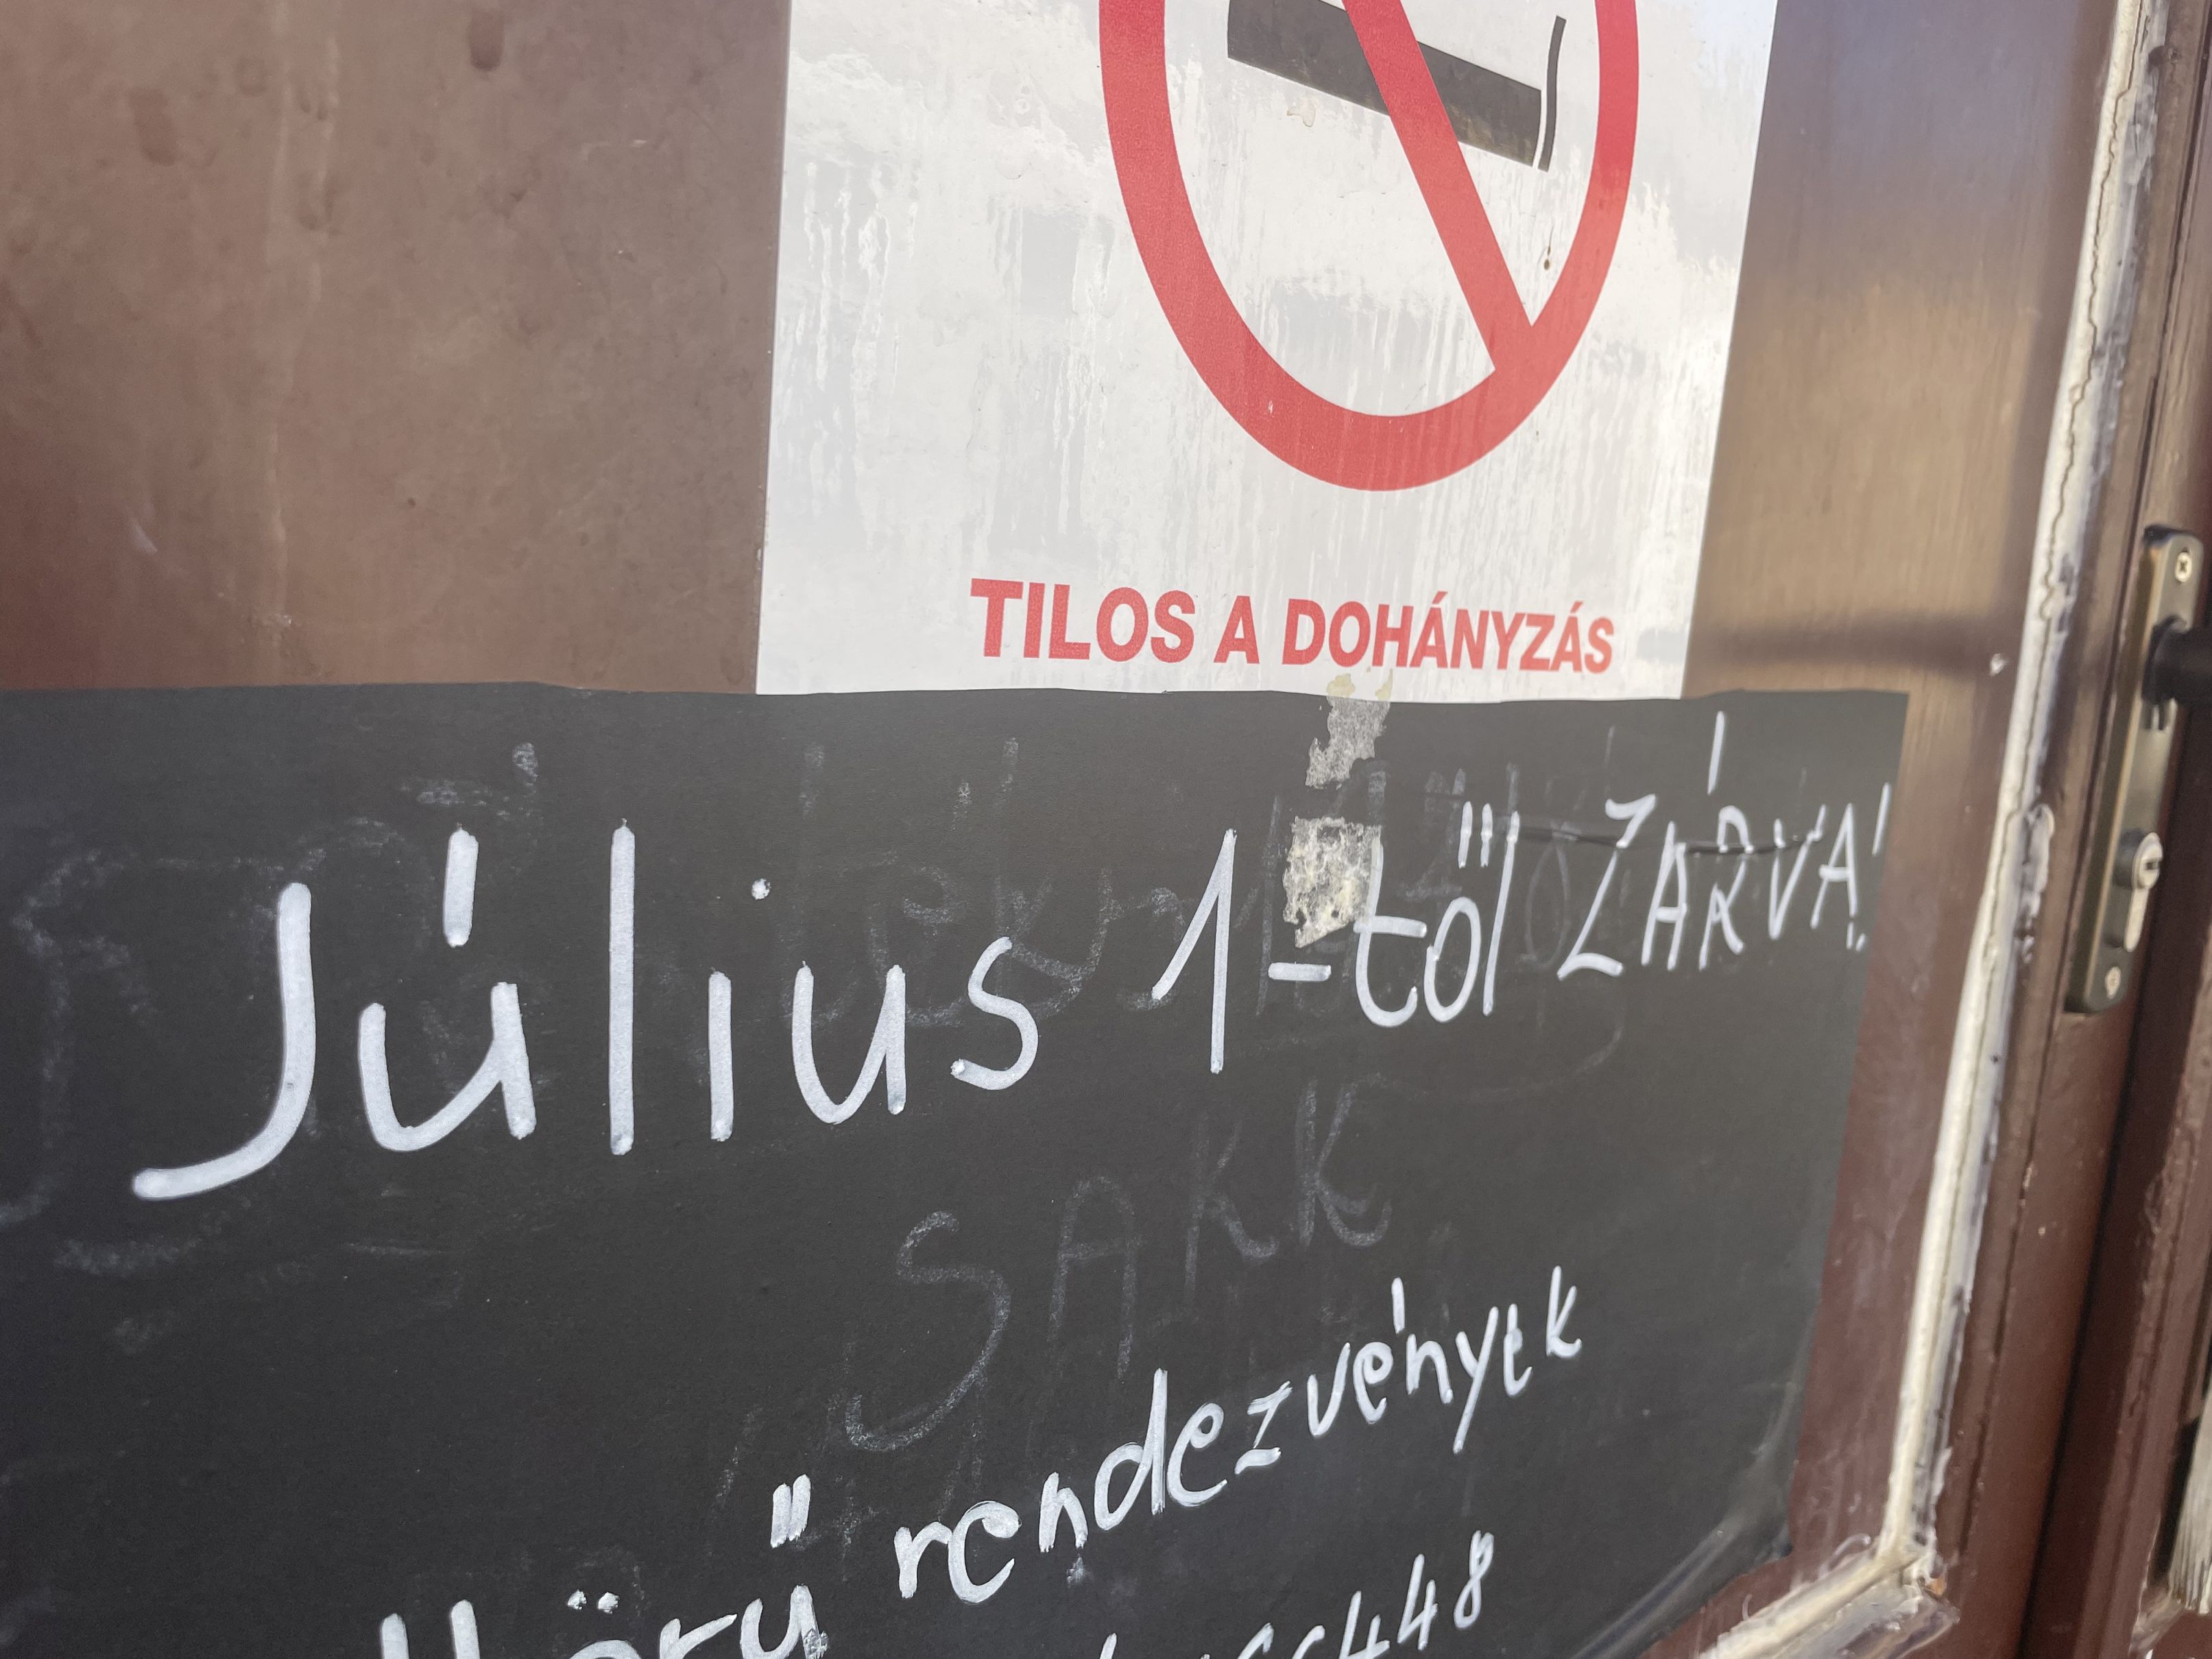 TILOS A DOHÁNYZÁS
Július 1-től ZÁRVA!
SAKK
rendezvények